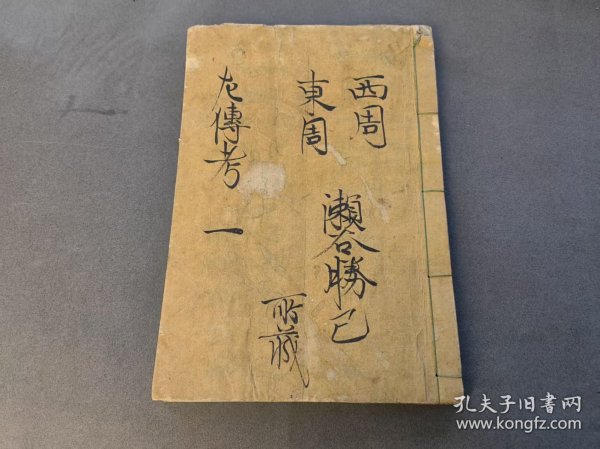 西周
東周
瀬谷勝己
所蔵
左傳考 一
孔夫子旧书网
www.kongfz.com